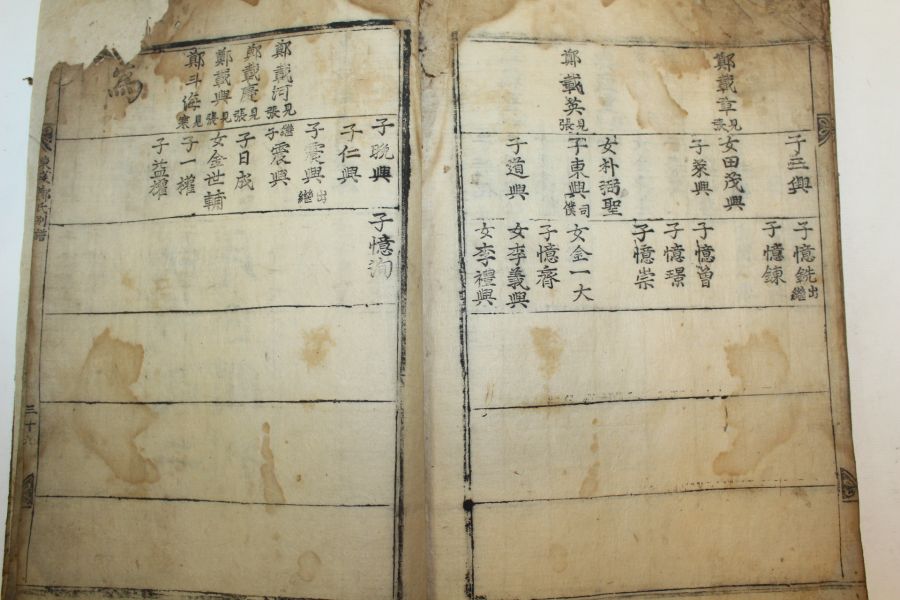 鄭載章見張
子三興
子憶銑出繼
子憶鍊
女田茂興
子萊興
子憶曾
子憶璟
子憶崇
鄭載英見張
女朴弼聖
子東興司僕
女金一大
子憶齊
子道興
女李義興
女李禮興
子晩興
子憶洵
子仁興
子震興出繼
鄭載河見張
繼子震興
鄭載慶見張
子日成
鄭載興見張
女金世輔
鄭斗海見
子一權
子益權